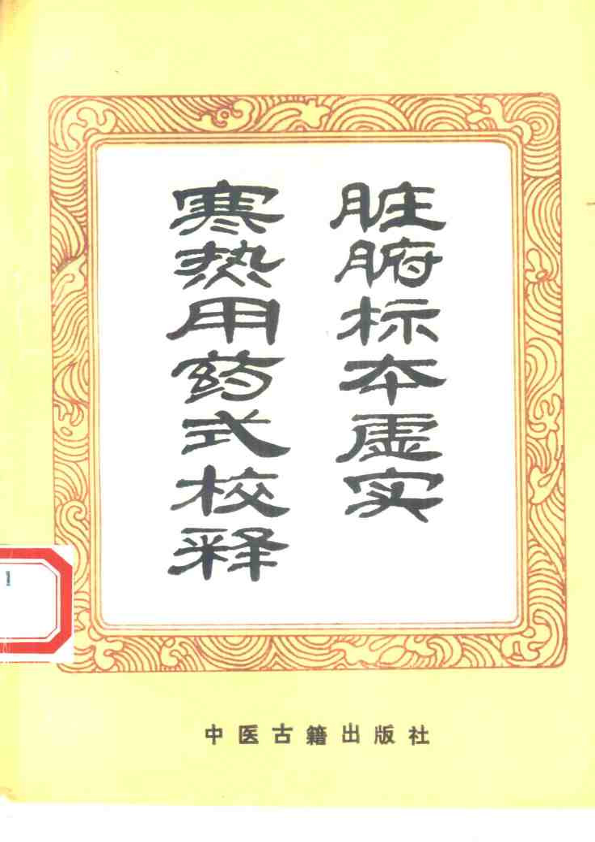 脏腑标本虚实
寒热用药式校释
中医古籍出版社
1